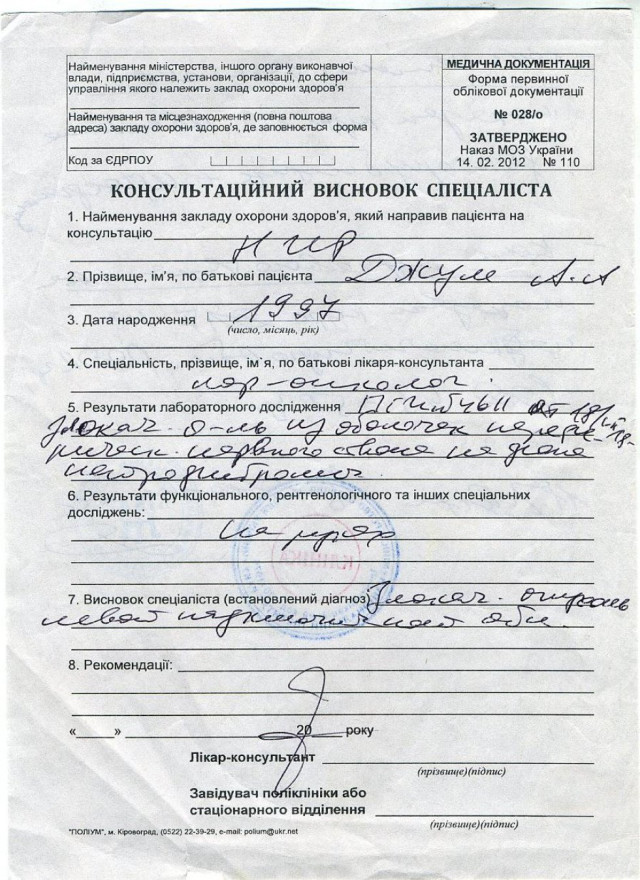 Найменування міністерства, іншого органу виконавчої
влади, підприємства, установи, організації, до сфери
управління якого належить заклад охорони здоров'я
Найменування та місцезнаходження (повна поштова
адреса) закладу охорони здоров'я, де заповнюється форма
Код за ЄДРПОУ
МЕДИЧНА ДОКУМЕНТАЦІЯ
Форма первинної
облікової документації
№ 028/о
ЗАТВЕРДЖЕНО
Наказ МОЗ України
14. 02. 2012 № 110
КОНСУЛЬТАЦІЙНИЙ ВИСНОВОК СПЕЦІАЛІСТА
1. Найменування закладу охорони здоров'я, який направив пацієнта на
консультацію НИР
2. Прізвище, ім'я, по батькові пацієнта Джум А.А
3. Дата народження 1997
(число, місяць, рік)
4. Спеціальність, прізвище, ім`я, по батькові лікаря-консультанта
лор-онколог
5. Результати лабораторного дослідження
злокач. о-ль из оболочек перифе-
рическ. нервного ствола на фоне
нейрофиброматоза
6. Результати функціонального, рентгенологічного та инших спеціальних
досліджень:
на руках
КЛІНІКА
7. Висновок спеціаліста (встановлений діагноз) Злокач. опухоль
левой надключичной обл.
8. Рекомендації:
«____» 20 року
Лікар-консультант
(прізвище)(підпис)
Завідувач поліклініки або
стаціонарного відділення
(прізвище)(підпис)
"ПОЛІУМ", м. Кіровоград, (0522) 22-39-29, e-mail: polium@ukr.net